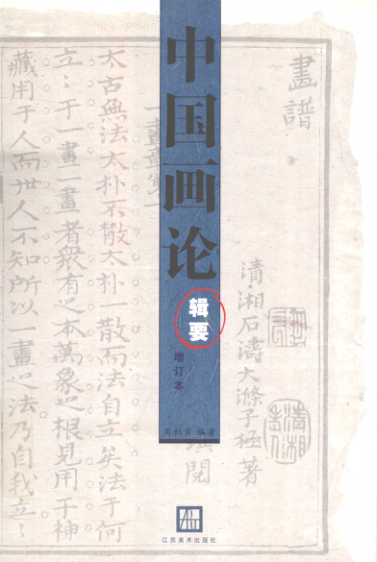 中国画论
辑要
增订本
周积寅 编著
江苏美术出版社
畫譜
清湘石濤大滌子極著
閱
一畫章
太古無法太朴不散太朴一散而法自立矣法于何
立〻于一畫一畫者衆有之本萬象之根見用于神
藏用于人而世人不知所以一畫之法乃自我立〻